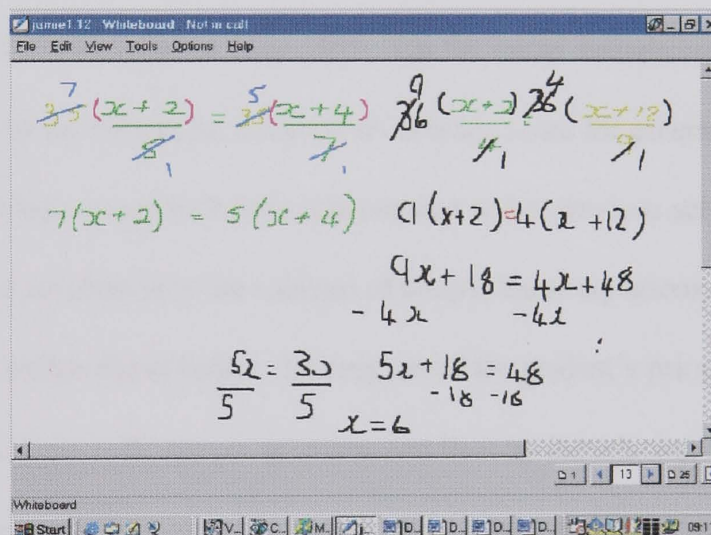 jamie1.12 - Whiteboard - Not in call
File Edit View Tools Options Help
7
35(x + 2) = 35(x + 4)
5
5 1
7 1
9
36(x+2) = 36(x+12)
4
4 1
9 1
7(x+2) = 5(x+4)
9(x+2)=4(x+12)
9x+18 = 4x+48
- 4x -4x
5x+18 = 48
-18 -18
5x = 30
5 5
x=6
1 13 25
Whiteboard
Start V... C... M... D... D... D... D...